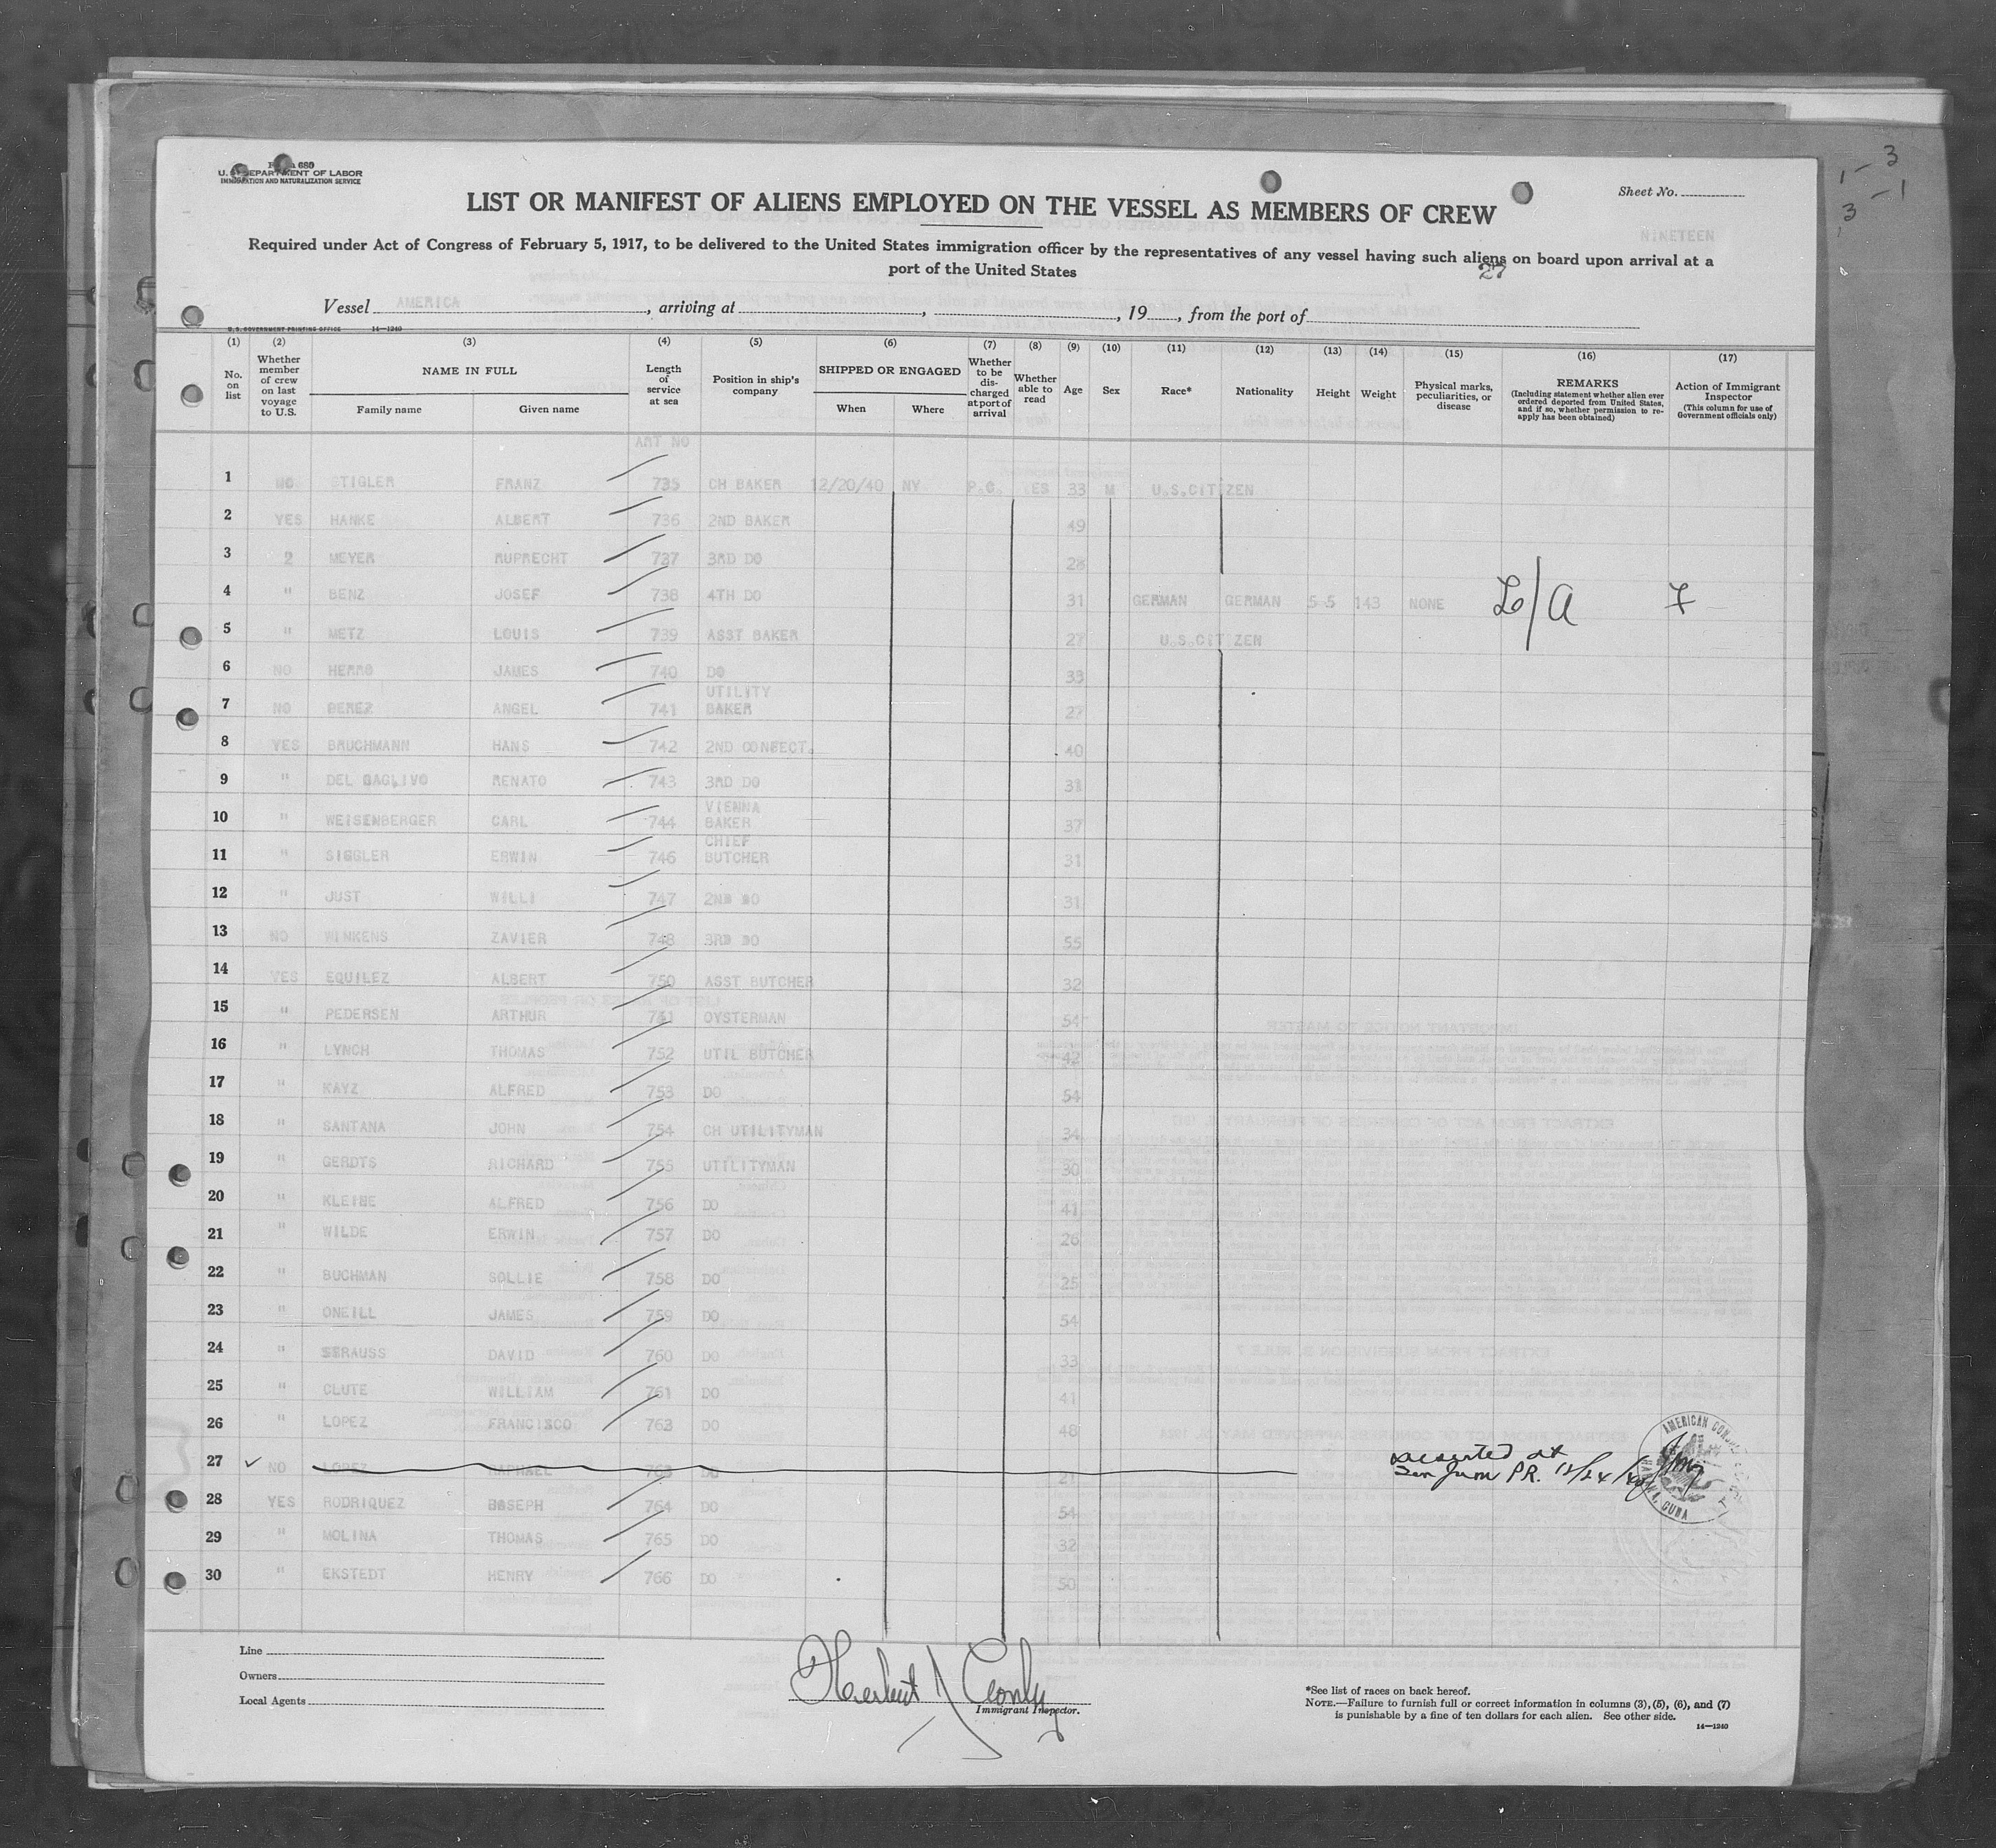 Form 680
U.S. DEPARTMENT OF LABOR
IMMIGRATION AND NATURALIZATION SERVICE
1 - 3
3 - 1
Sheet No.
LIST OR MANIFEST OF ALIENS EMPLOYED ON THE VESSEL AS MEMBERS OF CREW
NINETEEN
Required under Act of Congress of February 5, 1917, to be delivered to the United States immigration officer by the representatives of any vessel having such aliens on board upon arrival at a
port of the United States
27
Vessel AMERICA, arriving at , , 19 , from the port of
U. S. GOVERNMENT PRINTING OFFICE 14—1240
(1) (2) (3) (4) (5) (6) (7) (8) (9) (10) (11) (12) (13) (14) (15) (16) (17)
No. on list
Whether member of crew on last voyage to U.S.
NAME IN FULL
Family name
Given name
Length of service at sea
Position in ship's company
SHIPPED OR ENGAGED
When
Where
Whether to be discharged at port of arrival
Whether able to read
Age
Sex
Race*
Nationality
Height
Weight
Physical marks, peculiarities, or disease
REMARKS
(Including statement whether alien ever ordered deported from United States, and if so, whether permission to re-apply has been obtained)
Action of Immigrant Inspector
(This column for use of Government officials only)
ART NO
1 NO STIGLER FRANZ 735 CH BAKER 12/20/40 NY P.C. YES 33 M U.S.CITIZEN
2 YES HANKE ALBERT 736 2ND BAKER 49
3 2 MEYER RUPRECHT 737 3RD DO 28
4 " BENZ JOSEF 738 4TH DO 31 GERMAN GERMAN 5-5 143 NONE L/A F
5 " METZ LOUIS 739 ASST BAKER 27 U.S.CITIZEN
6 NO HERRO JAMES 740 DO 33
7 NO PEREZ ANGEL 741 UTILITY BAKER 27
8 YES BRUCHMANN HANS 742 2ND CONFECT. 40
9 " DEL GAGLIVO RENATO 743 3RD DO 31
10 " WEISENBERGER CARL 744 VIENNA BAKER 37
11 " SIGGLER ERWIN 746 CHIEF BUTCHER 31
12 " JUST WILLI 747 2ND DO 31
13 NO WINKENS ZAVIER 748 3RD DO 55
14 YES EQUILEZ ALBERT 750 ASST BUTCHER 32
15 " PEDERSEN ARTHUR 741 OYSTERMAN 54
16 " LYNCH THOMAS 752 UTIL BUTCHER 42
17 " KAYZ ALFRED 753 DO 54
18 " SANTANA JOHN 754 CH UTILITYMAN 34
19 " GERDTS RICHARD 755 UTILITYMAN 30
20 " KLEINE ALFRED 756 DO 41
21 " WILDE ERWIN 757 DO 26
22 " BUCHMAN SOLLIE 758 DO 25
23 " ONEILL JAMES 759 DO 54
24 " STRAUSS DAVID 760 DO 33
25 " CLUTE WILLIAM 761 DO 41
26 " LOPEZ FRANCISCO 762 DO 48
27 ✓ NO LOPEZ RAPHAEL 763 DO 21 deserted at
San Juan P.R. 12/24/40
AMERICAN CONSULATE HABANA, CUBA
28 YES RODRIQUEZ JOSEPH 764 DO 54
29 " MOLINA THOMAS 765 DO 32
30 " EKSTEDT HENRY 766 DO 50
Line
Owners
Local Agents
Herbert J
Immigrant Inspector.
*See list of races on back hereof.
NOTE.—Failure to furnish full or correct information in columns (3), (5), (6), and (7)
is punishable by a fine of ten dollars for each alien. See other side.
14—1240